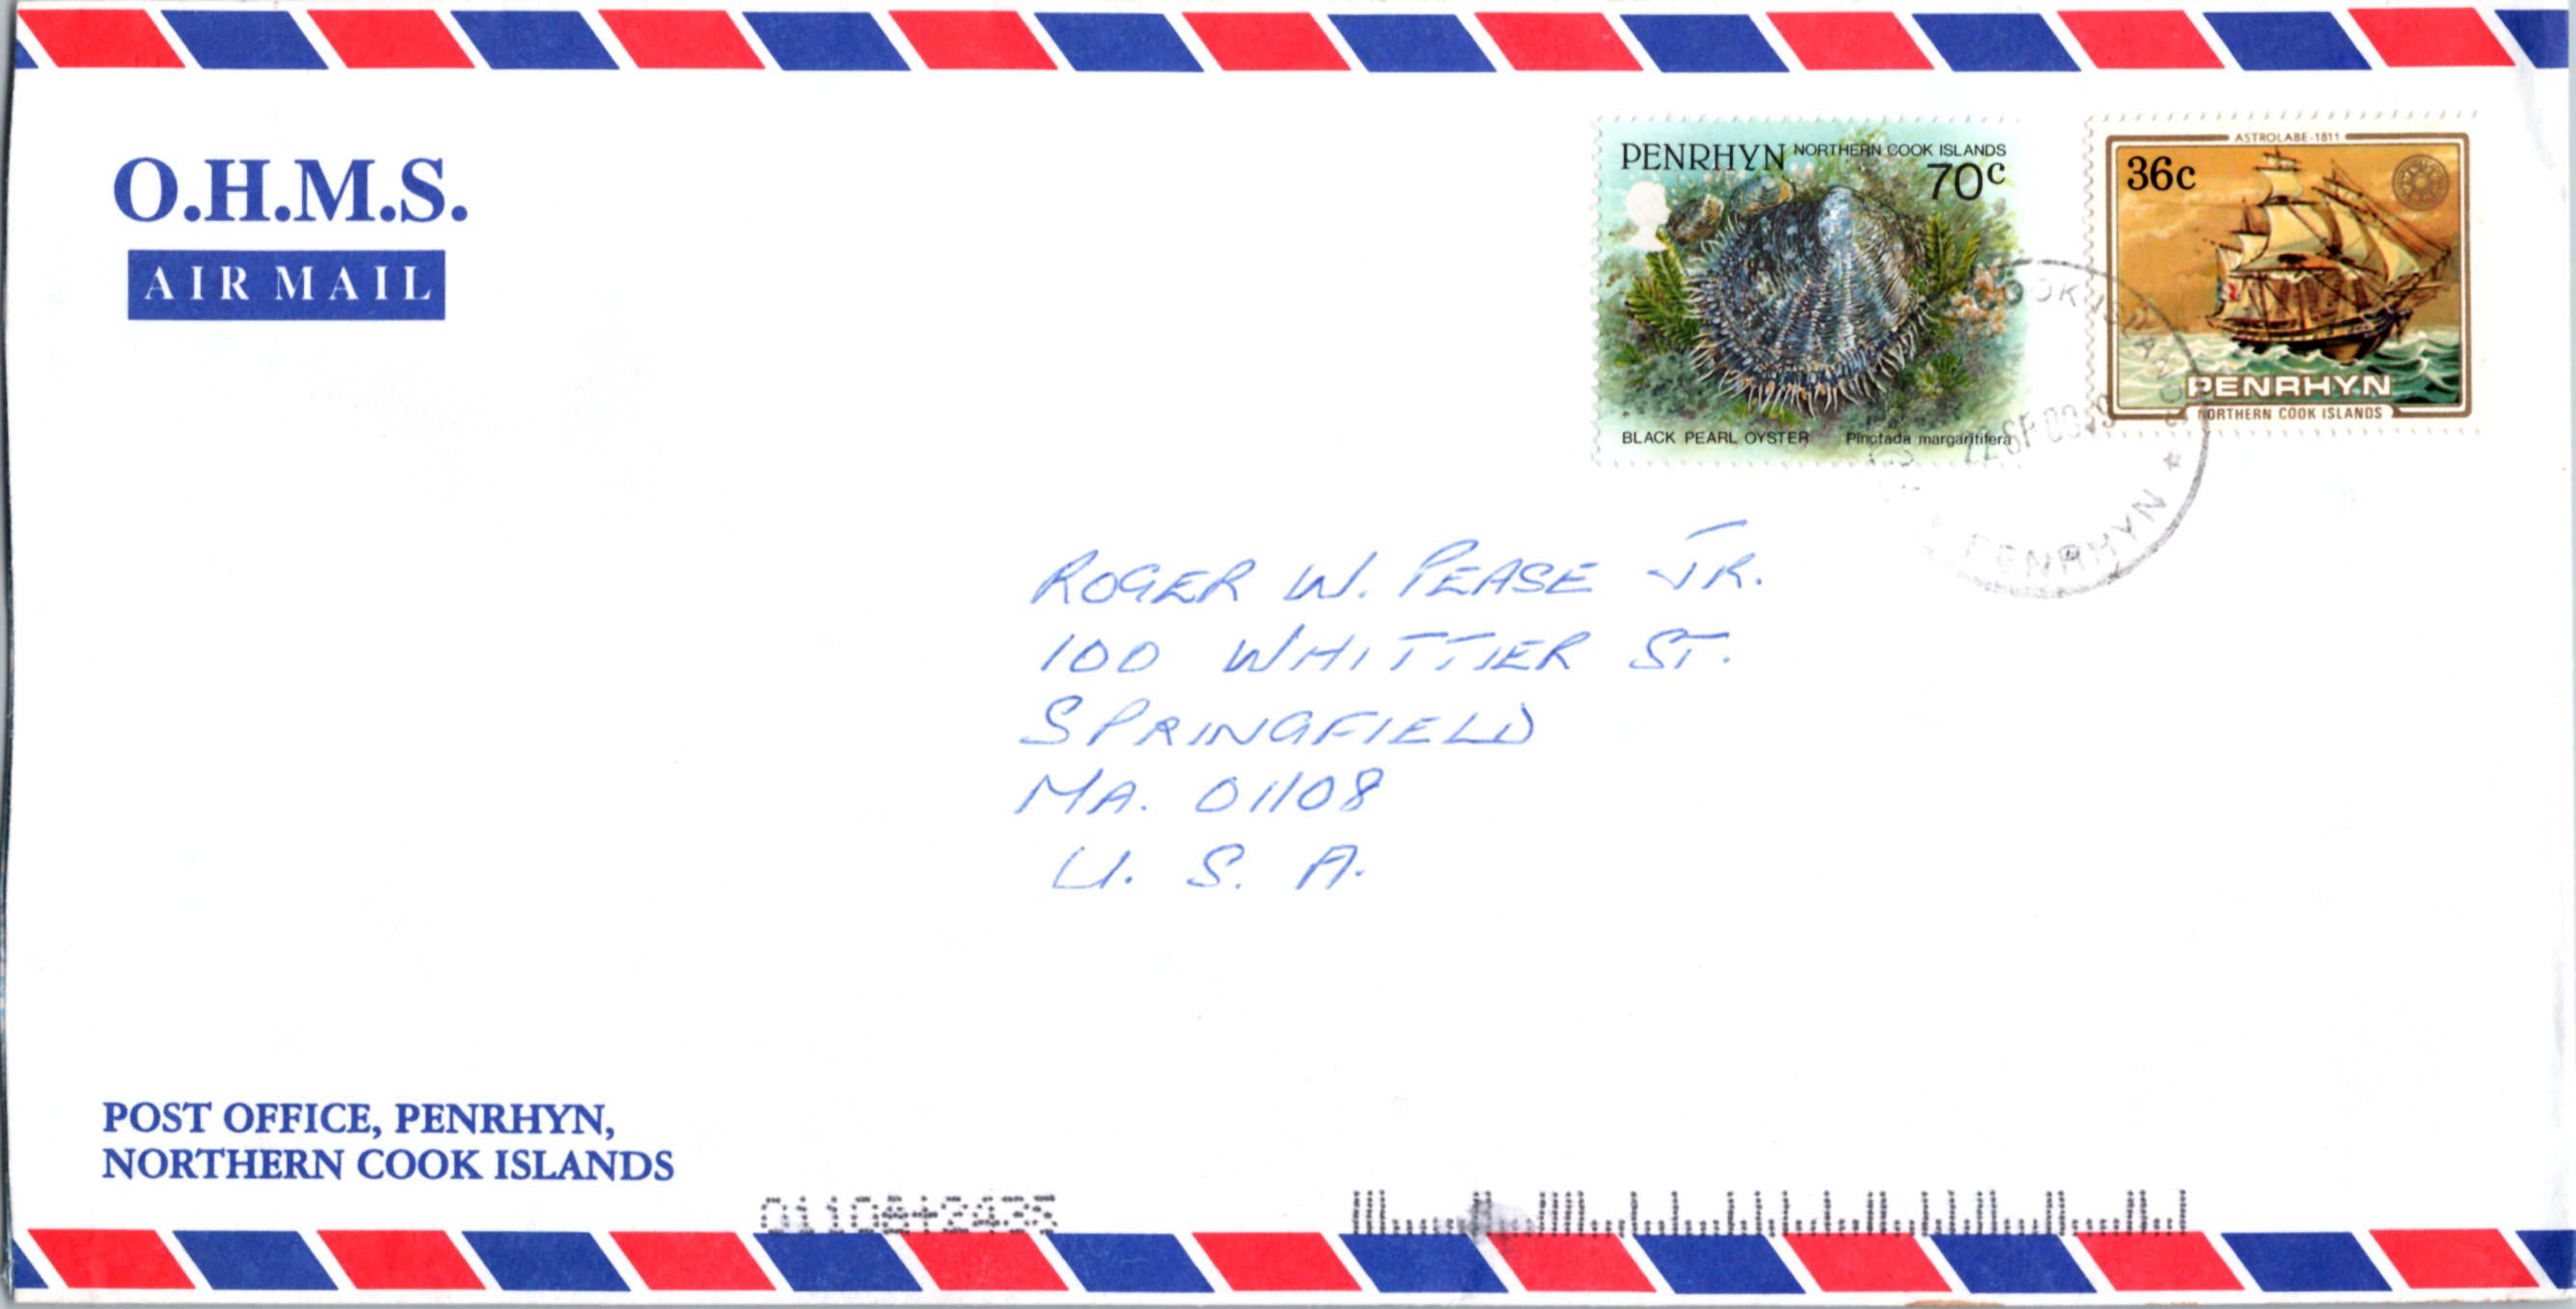 O.H.M.S.
AIR MAIL
PENRHYN NORTHERN COOK ISLANDS
70c
BLACK PEARL OYSTER Pinctada margaritifera
ASTROLABE-1811
36c
PENRHYN
NORTHERN COOK ISLANDS
COOK ISLANDS
PENRHYN
ROGER W. PEASE JR.
100 WHITTIER ST.
SPRINGFIELD
MA. 01108
U. S. A.
POST OFFICE, PENRHYN,
NORTHERN COOK ISLANDS